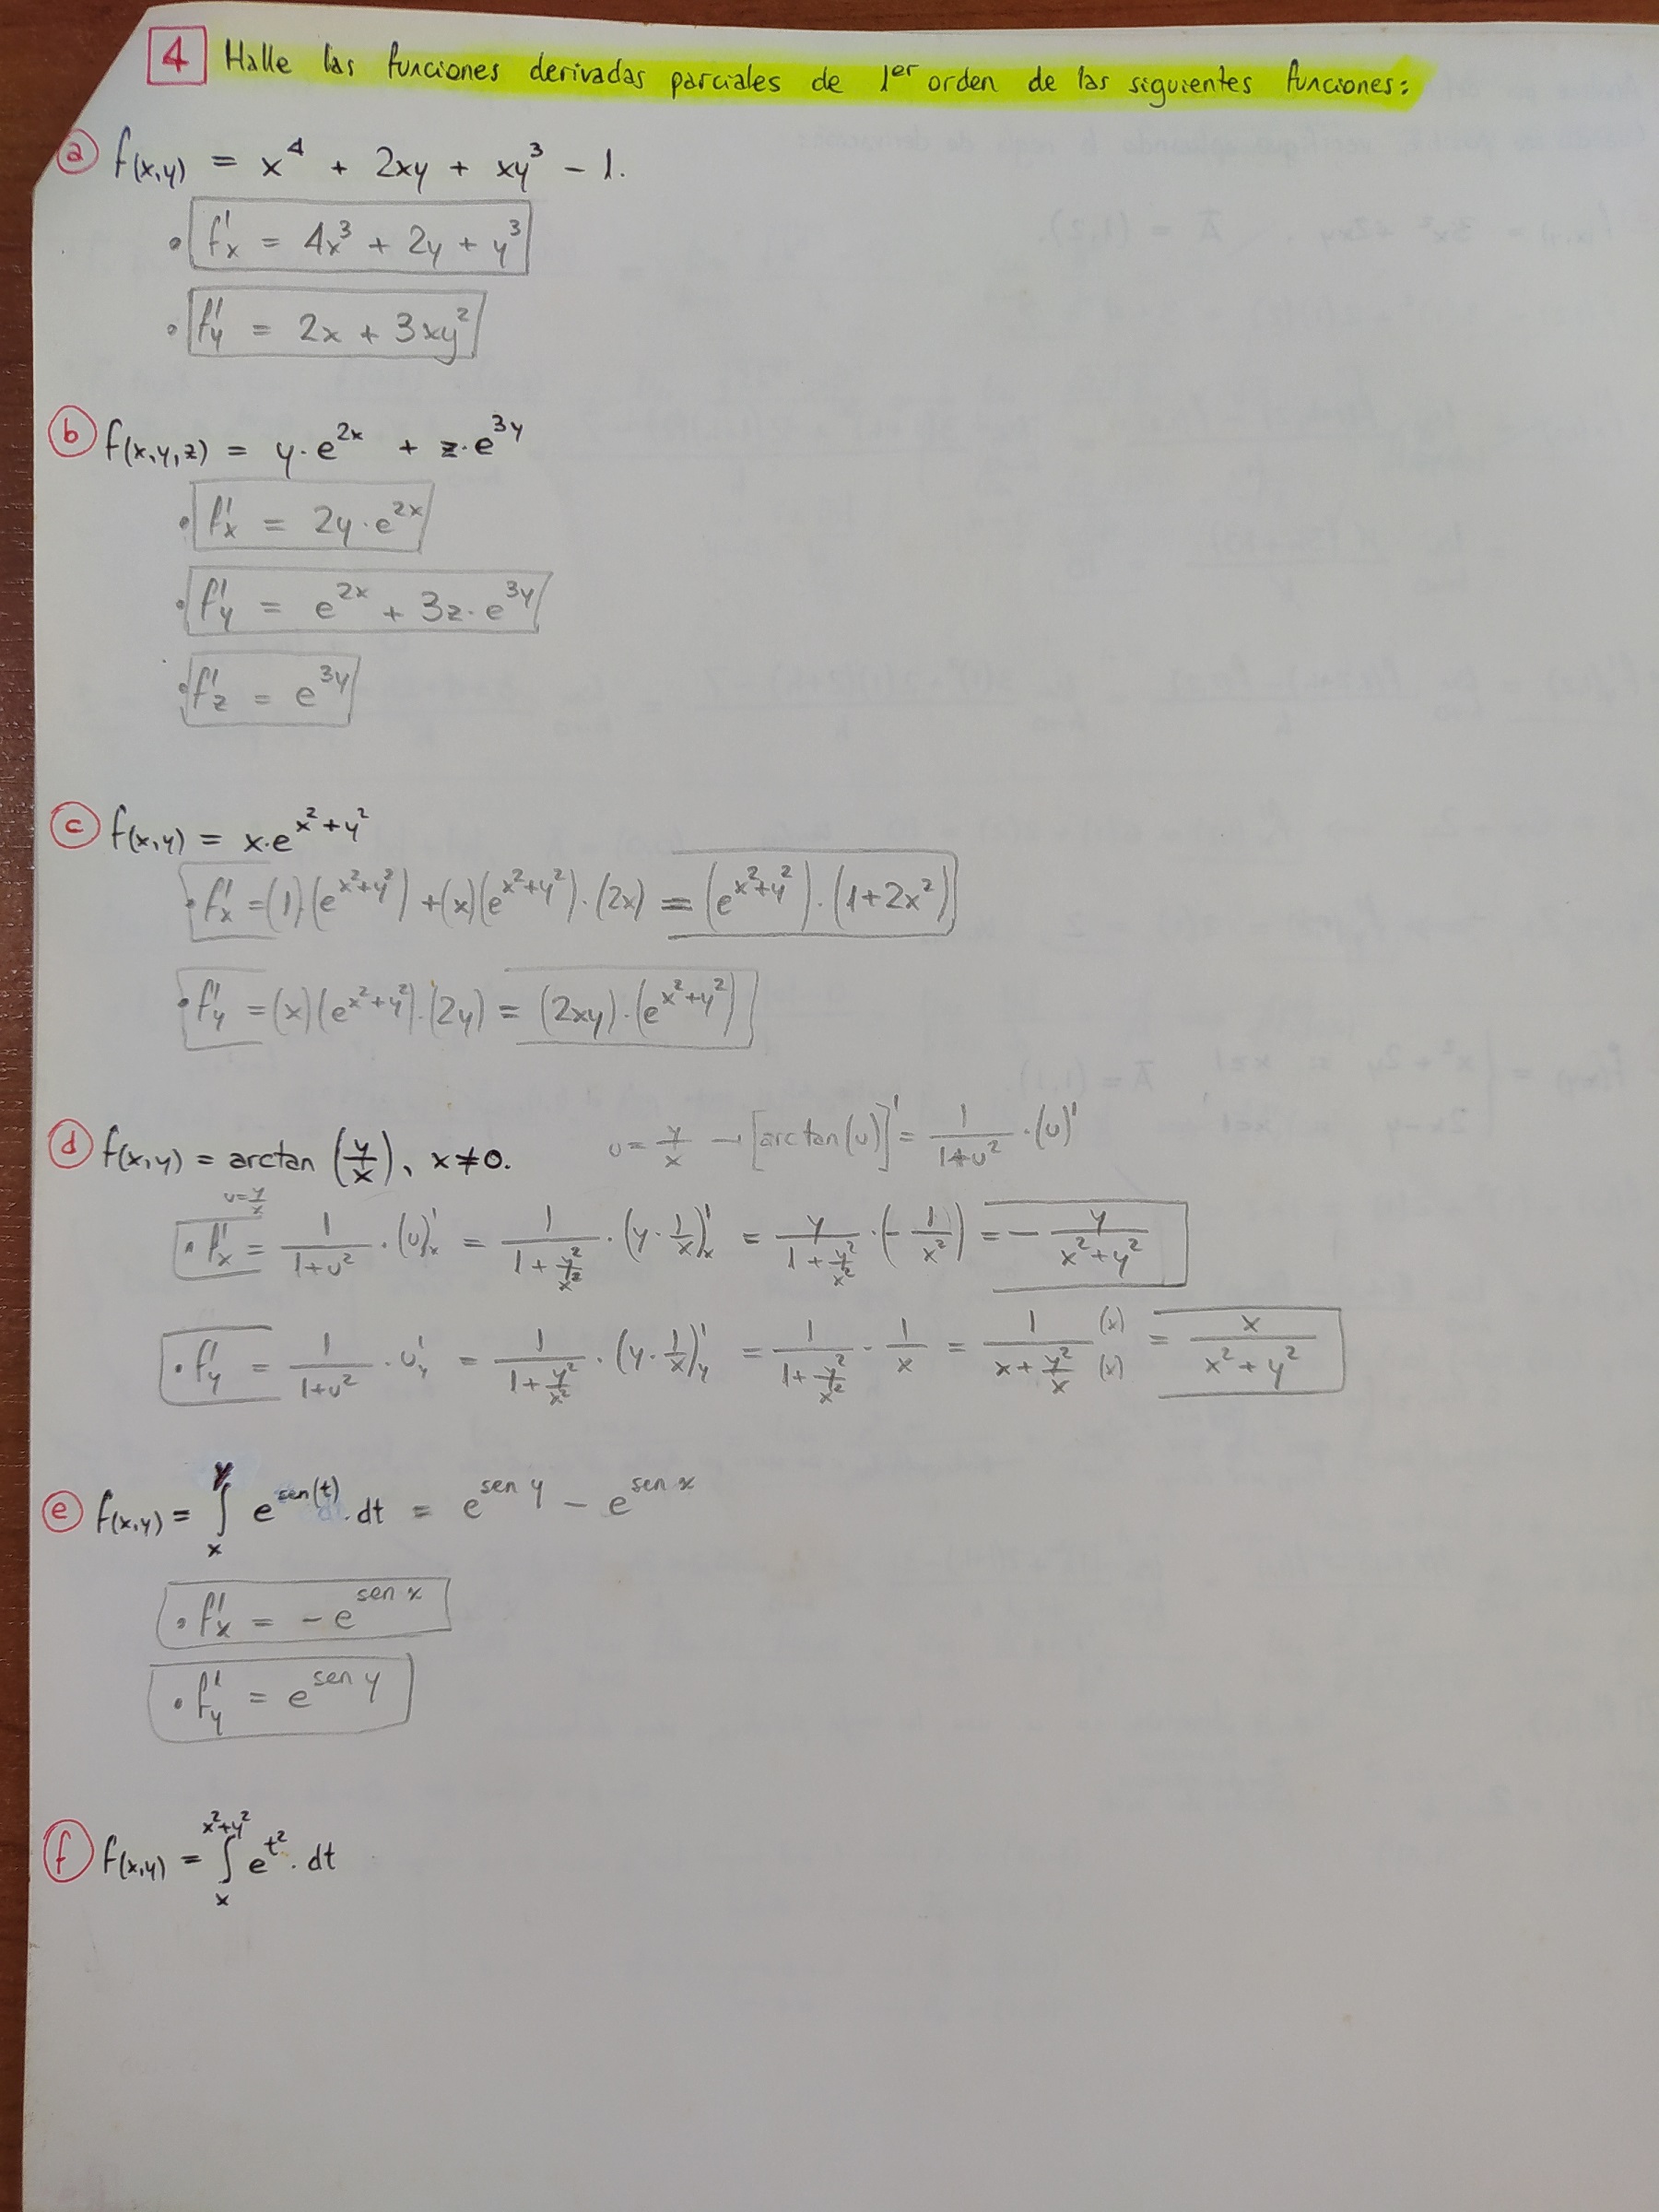 4 Halle las funciones derivadas parciales de 1er orden de las siguientes funciones:
a f(x,y) = x⁴ + 2xy + xy³ - 1.
• f'x = 4x³ + 2y + y³
• f'y = 2x + 3xy²
b f(x,y,z) = y·e^(2x) + z·e^(3y)
• f'x = 2y·e^(2x)
• f'y = e^(2x) + 3z·e^(3y)
• f'z = e^(3y)
c f(x,y) = x·e^(x²+y²)
• f'x = (1)·(e^(x²+y²)) + (x)(e^(x²+y²))·(2x) = (e^(x²+y²))·(1+2x²)
• f'y = (x)(e^(x²+y²))·(2y) = (2xy)·(e^(x²+y²))
d f(x,y) = arctan (y/x), x≠0. u = y/x → [arctan(u)]' = 1/(1+u²) · (u)'
u = y/x
• f'x = 1/(1+u²) · (u)'x = 1/(1 + y²/x²) · (y · 1/x)'x = y/(1 + y²/x²) · (- 1/x²) = - y/(x²+y²)
• f'y = 1/(1+u²) · u'y = 1/(1 + y²/x²) · (y · 1/x)'y = 1/(1 + y²/x²) · 1/x = 1/(x + y²/x) (x)/(x) = x/(x²+y²)
e f(x,y) = ∫ₓ^y e^(sen(t)) · dt = e^(sen y) - e^(sen x)
• f'x = - e^(sen x)
• f'y = e^(sen y)
f f(x,y) = ∫ₓ^(x²+y²) e^(t²) · dt